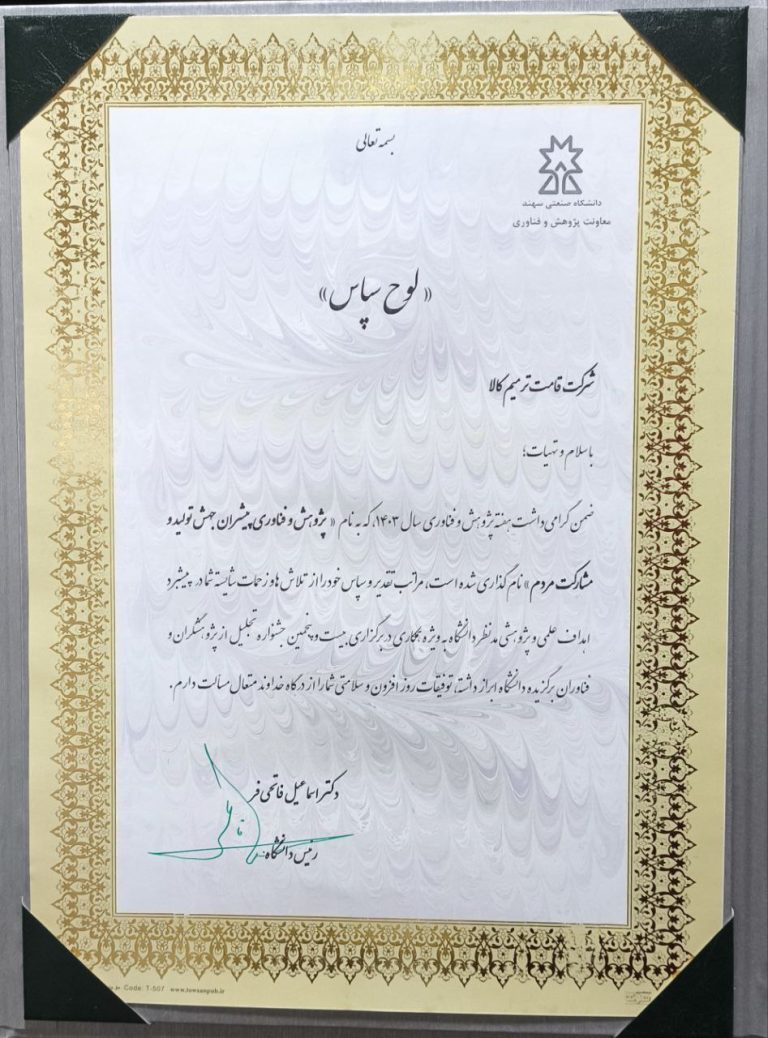 بسمه تعالی
دانشگاه صنعتی سهند
معاونت پژوهش و فناوری
« لوح سپاس »
شرکت قامت ترمیم کالا
با سلام و تهیات؛
ضمن گرامی داشت هفته پژوهش و فناوری سال ۱۴۰۳، که به نام « پژوهش و فناوری پیشران جهش تولید و
مشارکت مردم » نام گذاری شده است، مراتب تقدیر و سپاس خود را از تلاش ها و زحمات شایسته شما در پیشبرد
اهداف علمی و پژوهشی مدنظر دانشگاه به ویژه همکاری در برگزاری بیست و پنجمین جشنواره تجلیل از پژوهشگران و
فناوران برگزیده دانشگاه ابراز داشته، توفیقات روز افزون و سلامتی شما را از درگاه خداوند متعال مسألت دارم.
دکتر اسماعیل فاتحی فر
رئیس دانشگاه
Code: T-507 www.towsanpub.ir